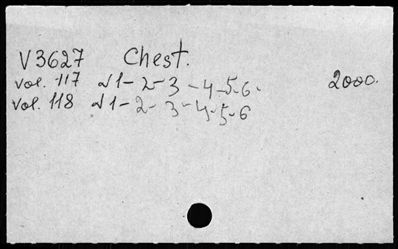 V3627 Chest.
vol. 117 N1-2-3-4-5-6. 2000.
vol. 118 N1-2-3-4-5-6